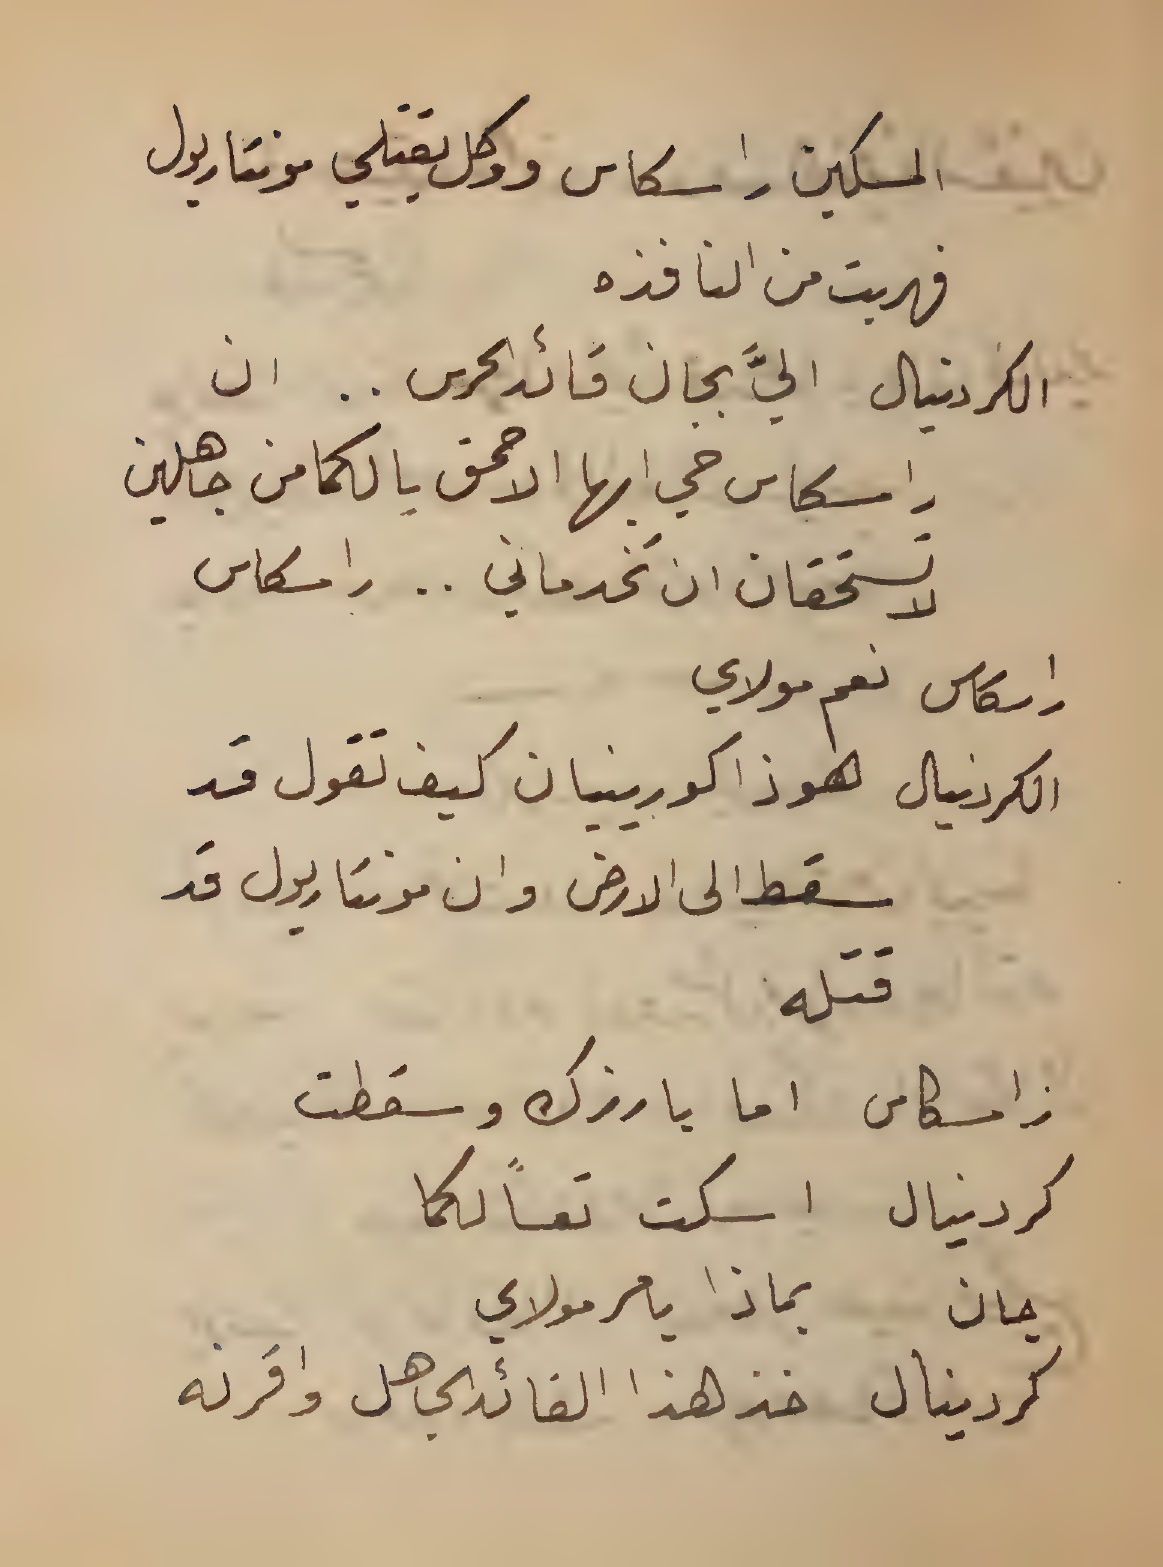 المسكين راسكاس ووكل بقتلي مونتاريول
فهربت من النافذه
الكردنيال اليَّ بجان قائد الحرس .. ان
راسكاس حي ايها الاحمق يالكما من جاهلين
لا تستحقان ان تخدماني .. راسكاس
راسكاس نعم مولاي
الكردنيال هوذا كورينيان كيف تقول قد
سقط الى الارض وان مونتاريول قد
قتله
راسكاس اما بارزك وسقطت
كردنيال اسكت تعساً لكما
جان بماذا يامر مولاي
كردينال خذ هذا القائد الجاهل واقرنه